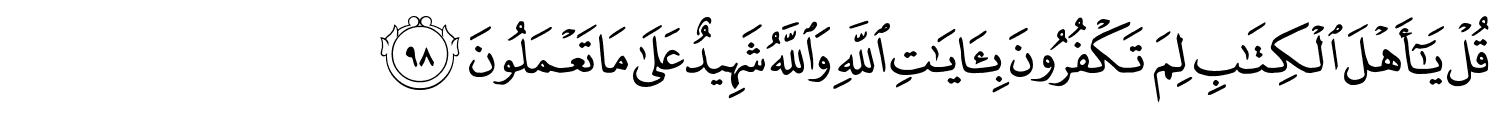 قُلْ يَـٰٓأَهْلَ ٱلْكِتَـٰبِ لِمَ تَكْفُرُونَ بِـَٔايَـٰتِ ٱللَّهِ وَٱللَّهُ شَهِيدٌ عَلَىٰ مَا تَعْمَلُونَ ٩٨